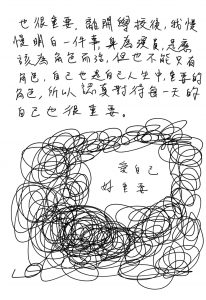 也很重要，離開學校後，我慢
慢明白一件事身為演員，是應
該為角色而活，但也不能只有
角色，自己也是自己人生中，重要的
角色，所以認真對待每一天的
自己也很重要。
愛自己
好重要